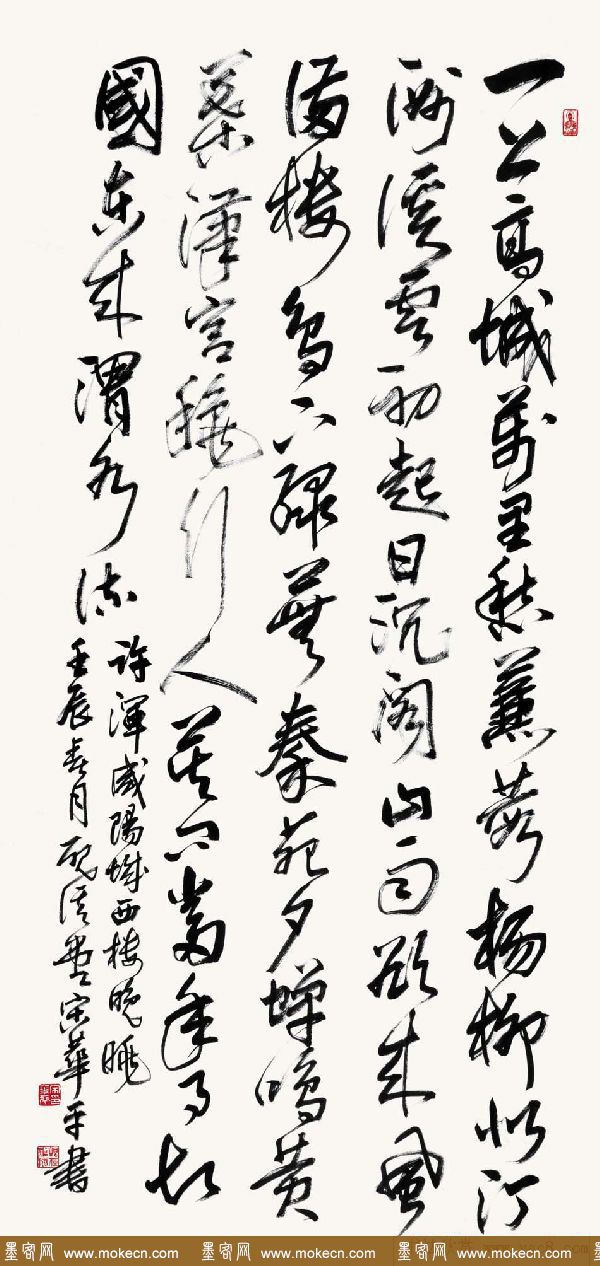 一上高城萬里愁蒹葭楊柳似汀
洲溪雲初起日沉閣山雨欲來風
滿樓鳥下綠蕪秦苑夕蟬鳴黃
葉漢宮穐行人莫問當年事故
國東來渭水流
許渾咸陽城西樓晚眺
壬辰春月宋華平書
墨客网 www.mokecn.com 墨客网 www.mokecn.com 墨客网 www.mokecn.com